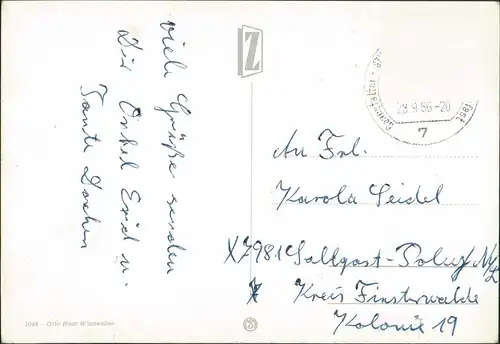 viele Grüße senden
Dir Onkel Erich u.
Tante Dorchen
Z
28.9.86-20
7
An Frl.
Karola Seidel
X7981 Sallgast-Poley N/L
Kreis Finsterwalde
Kolonie 19
1046 - Otto Haar-Winzenden